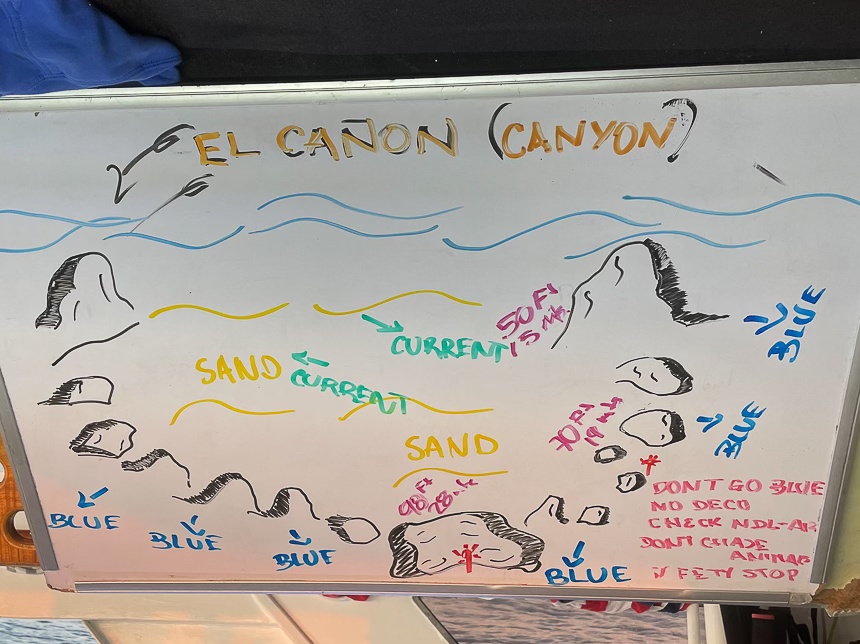 EL CAÑON (CANYON)
50 Ft
15 Mts
BLUE
CURRENT
SAND
CURRENT
70 Ft
19 Mts
BLUE
SAND
98 Ft
28 Mts
DON'T GO BLUE
NO DECO
CHECK NDL-AIR
DON'T CHADE
ANIMAL
FETY STOP
BLUE
BLUE
BLUE
BLUE